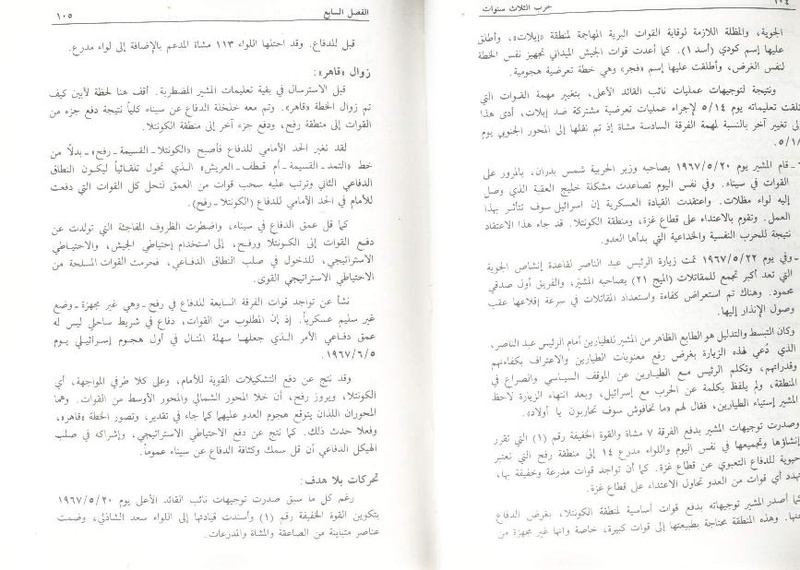 ١٠٤ حرب الثلاث سنوات
الجوية، والمظلة اللازمة لوقاية القوات البرية المهاجمة لمنطقة «إيلات»، وأطلق
عليها إسم كودي (أسد ١). كما أعدت قوات الجيش الميداني تجهيز نفس الخطة
لنفس الغرض، وأطلقت عليها إسم «فجر»، وهي خطة تعرضية هجومية.
ونتيجة لتوجيهات عمليات نائب القائد الأعلى، بتغيير مهمة القوات التي
تلقت تعليماته يوم ٥/١٤ لإجراء عمليات تعرضية مشتركة ضد إيلات، أدى هذا
إلى تغيير آخر بالنسبة لمهمة الفرقة السادسة مشاة إذ تم نقلها إلى المحور الجنوبي يوم
- قام المشير يوم ١٩٦٧/٥/٢٠ يصاحبه وزير الحربية شمس بدران، بالمرور على
القوات في سيناء. وفي نفس اليوم تصاعدت مشكلة خليج العقبة الذي وصل
إليه لواء مظلات. واعتقدت القيادة العسكرية إن اسرائيل سوف تتأثر بهذا
العمل. وتقوم بالاعتداء على قطاع غزة، ومنطقة الكونتلا. قد جاء هذا الاعتقاد
نتيجة للحرب النفسية والخداعية التي بدأها العدو.
- وفي يوم ١٩٦٧/٥/٢٢ تمت زيارة الرئيس عبد الناصر لقاعدة إنشاص الجوية
التي تعد أكبر تجمع للمقاتلات (الميج ٢١) يصاحبه المشير، والفريق أول صدقي
محمود. وهناك تم استعراض كفاءة واستعداد المقاتلات في سرعة إقلاعها عقب
وصول الإنذار إليها.
وكان التبسط والتدليل هو الطابع الظاهر من المشير للطيارين أمام الرئيس عبد الناصر،
الذي دُعي لهذه الزيارة بغرض رفع معنويات الطيارين والاعتراف بكفاءتهم
وقدراتهم، وتكلم الرئيس مع الطيارين عن الموقف السياسي والصراع في
المنطقة، ولم يلفظ بكلمة عن الحرب مع إسرائيل، وبعد انتهاء الزيارة لاحظ
المشير إستياء الطيارين، فقال لهم «ما تخافوش سوف تحاربون يا أولاد».
وصدرت توجيهات المشير بدفع الفرقة ٧ مشاة والقوة الخفيفة رقم (١) التي تقرر
إنشاؤها وتجميعها في نفس اليوم واللواء مدرع ١٤ إلى منطقة رفح التي تعتبر
حيوية للدفاع التعبوي عن قطاع غزة. كما أن تواجد قوات مدرعة وخفيفة بها،
تهدد أي قوات من العدو تحاول الاعتداء على قطاع غزة.
كما أصدر المشير توجيهاته بدفع قوات أساسية لمنطقة الكونتلا، بغرض الدفاع
عنها. وهذه المنطقة محتاجة بطبيعتها إلى قوات كبيرة، خاصة وانها غير مجهزة من
الفصل السابع ١٠٥
قبل للدفاع. وقد احتلها اللواء ١١٣ مشاة المدعم بالإضافة إلى لواء مدرع.
زوال «قاهر»:
قبل الاسترسال في بقية تعليمات المشير المضطربة. أقف هنا لحظة لأبين كيف
تم زوال الخطة «قاهر». وتم معه خلخلة الدفاع عن سيناء كلياً نتيجة دفع جزء من
القوات إلى منطقة رفح، ودفع جزء آخر إلى منطقة الكونتلا.
لقد تغير الحد الأمامي للدفاع فأصبح «الكونتلا - القسيمة - رفح» - بدلاً من
خط «التمد - القسيمة - أم قطف - العريش» الذي تحول تلقائياً ليكون النطاق
الدفاعي الثاني وترتب عليه سحب قوات من العمق لتحل كل القوات التي دفعت
للأمام في الحد الأمامي للدفاع (الكونتلا - رفح).
كما قل عمق الدفاع في سيناء، واضطرت الظروف المفاجئة التي تولدت عن
دفع القوات إلى الكونتلا ورفح، إلى استخدام إحتياطي الجيش، والاحتياطي
الاستراتيجي، للدخول في صلب النطاق الدفاعي، فحرمت القوات المسلحة من
الاحتياطي الاستراتيجي القوى.
نشأ عن تواجد قوات الفرقة السابعة للدفاع في رفح - وهي غير مجهزة - وضع
غير سليم عسكرياً. إذ إن المطلوب من القوات، دفاع في شريط ساحلي ليس له
عمق دفاعي الأمر الذي جعلها سهلة المنال في أول هجوم إسرائيلي يوم
١٩٦٧/٦/٥.
وقد نتج عن دفع التشكيلات القوية للأمام، وعلى كلا طرفي المواجهة، أي
الكونتلا، وبروز رفح، أن خلا المحور الشمالي والمحور الأوسط من القوات. وهما
المحوران اللذان يتوقع هجوم العدو عليهما كما جاء في تقدير، وتصور الخطة «قاهر»،
وفعلا حدث ذلك. كما نتج عن دفع الاحتياطي الاستراتيجي، وإشراكه في صلب
الهيكل الدفاعي أن قل سمك وكثافة الدفاع عن سيناء عموماً.
تحركات بلا هدف:
رغم كل ما سبق صدرت توجيهات نائب القائد الأعلى يوم ١٩٦٧/٥/٢٠
بتكوين القوة الخفيفة رقم (١) وأسندت قيادتها إلى اللواء سعد الشاذلي، وضمت
عناصر متباينة من الصاعقة والمشاة والمدرعات.